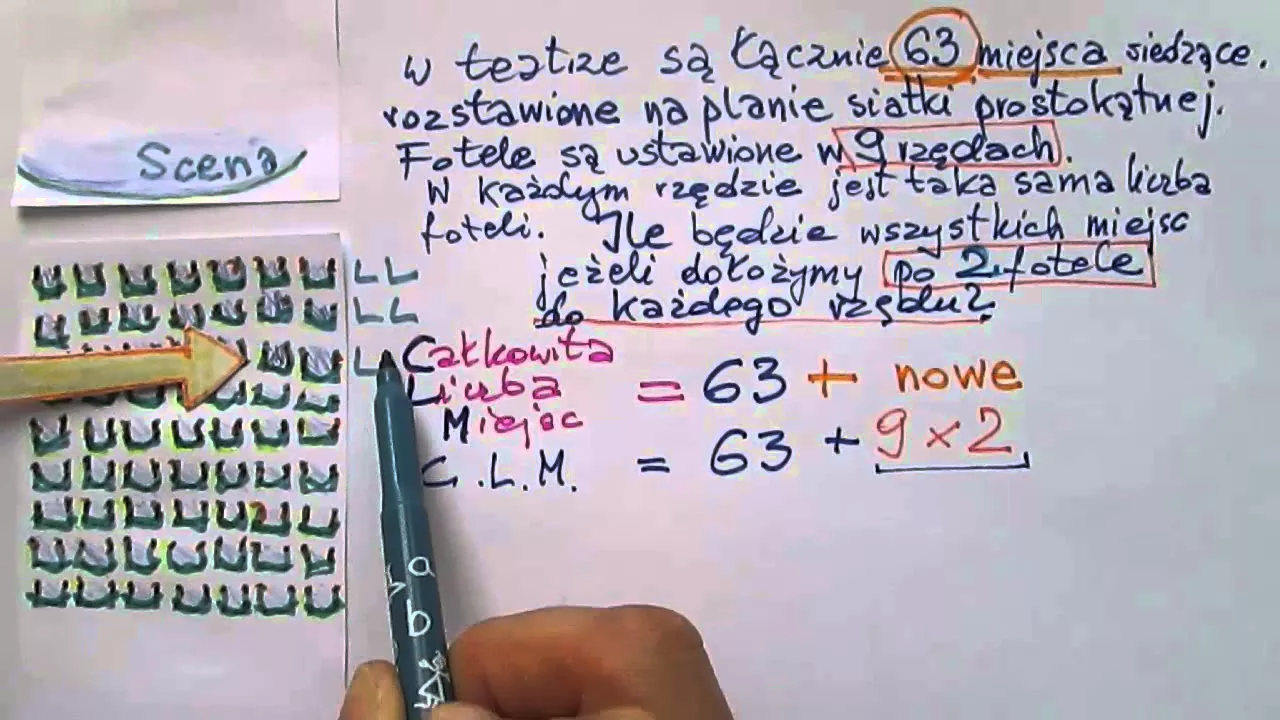 Scena
w teatrze są Łącznie 63 miejsca siedzące.
rozstawione na planie siatki prostokątnej.
Fotele są ustawione w 9 rzędach.
W każdym rzędzie jest taka sama liczba
foteli. Ile będzie wszystkich miejsc
jeżeli dołożymy po 2 fotele
do każdego rzędu?
Całkowita
Liczba = 63 + nowe
Miejsc
C.L.M. = 63 + 9 x 2
a
b